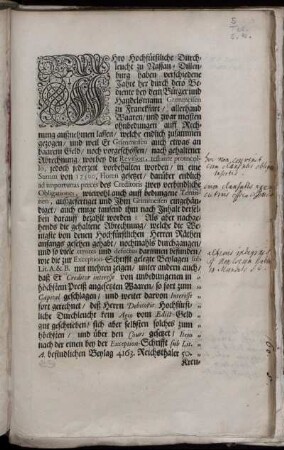 Ihro Hochfürstliche Durch-
leucht zu Nassau-Dillen-
burg haben verschiedene
Jahre her durch dero Be-
diente bey dem Bürger und
Handelsmann Grimmeisen
zu Franckfurt, allerhand
Waaren, und zwar meisten
ohnbedungen auff Rech-
nung aufnehmen lassen, welche endlich zusammen
gezogen, und weil Er Grimmeisen auch etwas an
baarem Geld noch vorgeschossen, nach gehaltener
Abrechnung, worbey die Revision,
jedoch jederzeit vorbehalten worden, in eine
Summ von Floren gesetzet, darüber dieselbe
ad importunas preces des Creditoris zwey verbindliche
Obligationes, wiewohl auch auff bedungene Termi-
nen, ausgefertiget und Ihm Grimmeisen eingehändi-
get, auch einige tausend ihm nach Inhalt dersel-
ben darauff bezahlt worden: Als aber nachge-
hends die gehaltene Abrechnung, welche die Be-
amte von denen Hochfürstlichen Herrn Räthen
anfangs gesehen gehabt, nochmahls durchgangen,
und so viele errores und defectus darinnen befunden,
wie die zur Exceptions-Schrifft gelegte Beylagen sub
Lit. A. & B. mit mehren zeigen, unter andern auch,
daß Er Creditor interesse von unbedungenen in
höchstem Preiß angesetzten Waaren, so fort zum
Capital geschlagen, und weiter darvon Interesse
fort gerechnet, daß Herrn Debitoris Hochfürst-
liche Durchleucht kein Agio vom Edict-Geld
gut geschrieben, sich aber selbsten solches zum
höchsten, und über den Cours gesetzet: Item
nach der einen bey der Exceptions-Schrifft sub Lit.
A. befindlichen Beylag 4263. Reichsthaler 50.
Kreu-